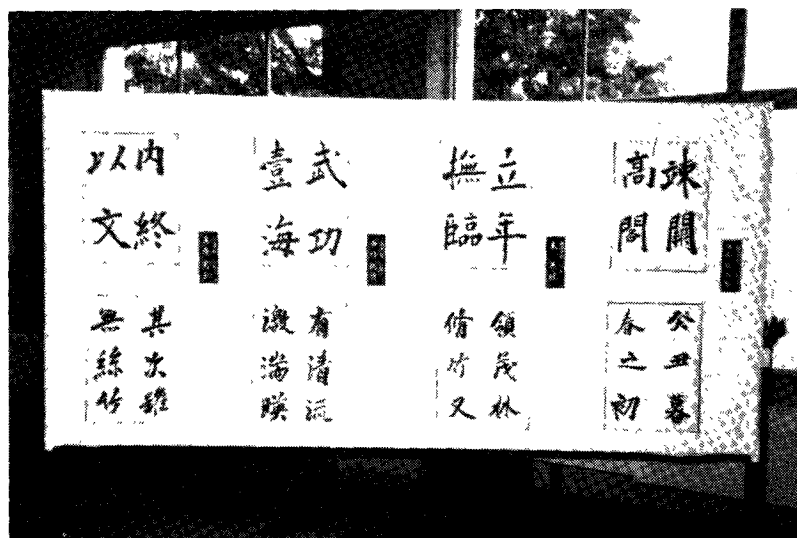 竦開
高閣
癸丑暮
春之初
立年
撫臨
領茂林
脩竹又
武功
壹海
有清流
激湍暎
内終
以文
其次雖
無絲竹